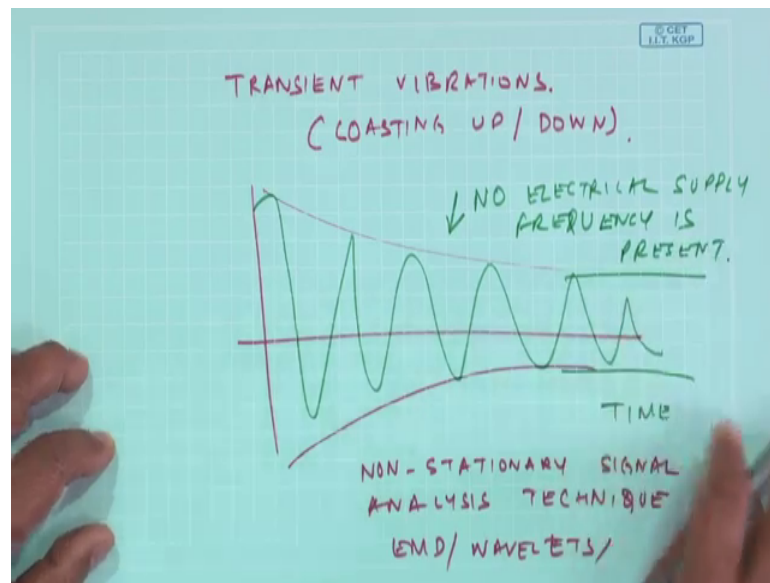 © CET
I.I.T. KGP
TRANSIENT VIBRATIONS.
(COASTING UP/ DOWN).
↓ NO ELECTRICAL SUPPLY
FREQUENCY IS
PRESENT.
TIME
NON-STATIONARY SIGNAL
ANALYSIS TECHNIQUE
EMD/ WAVELETS/